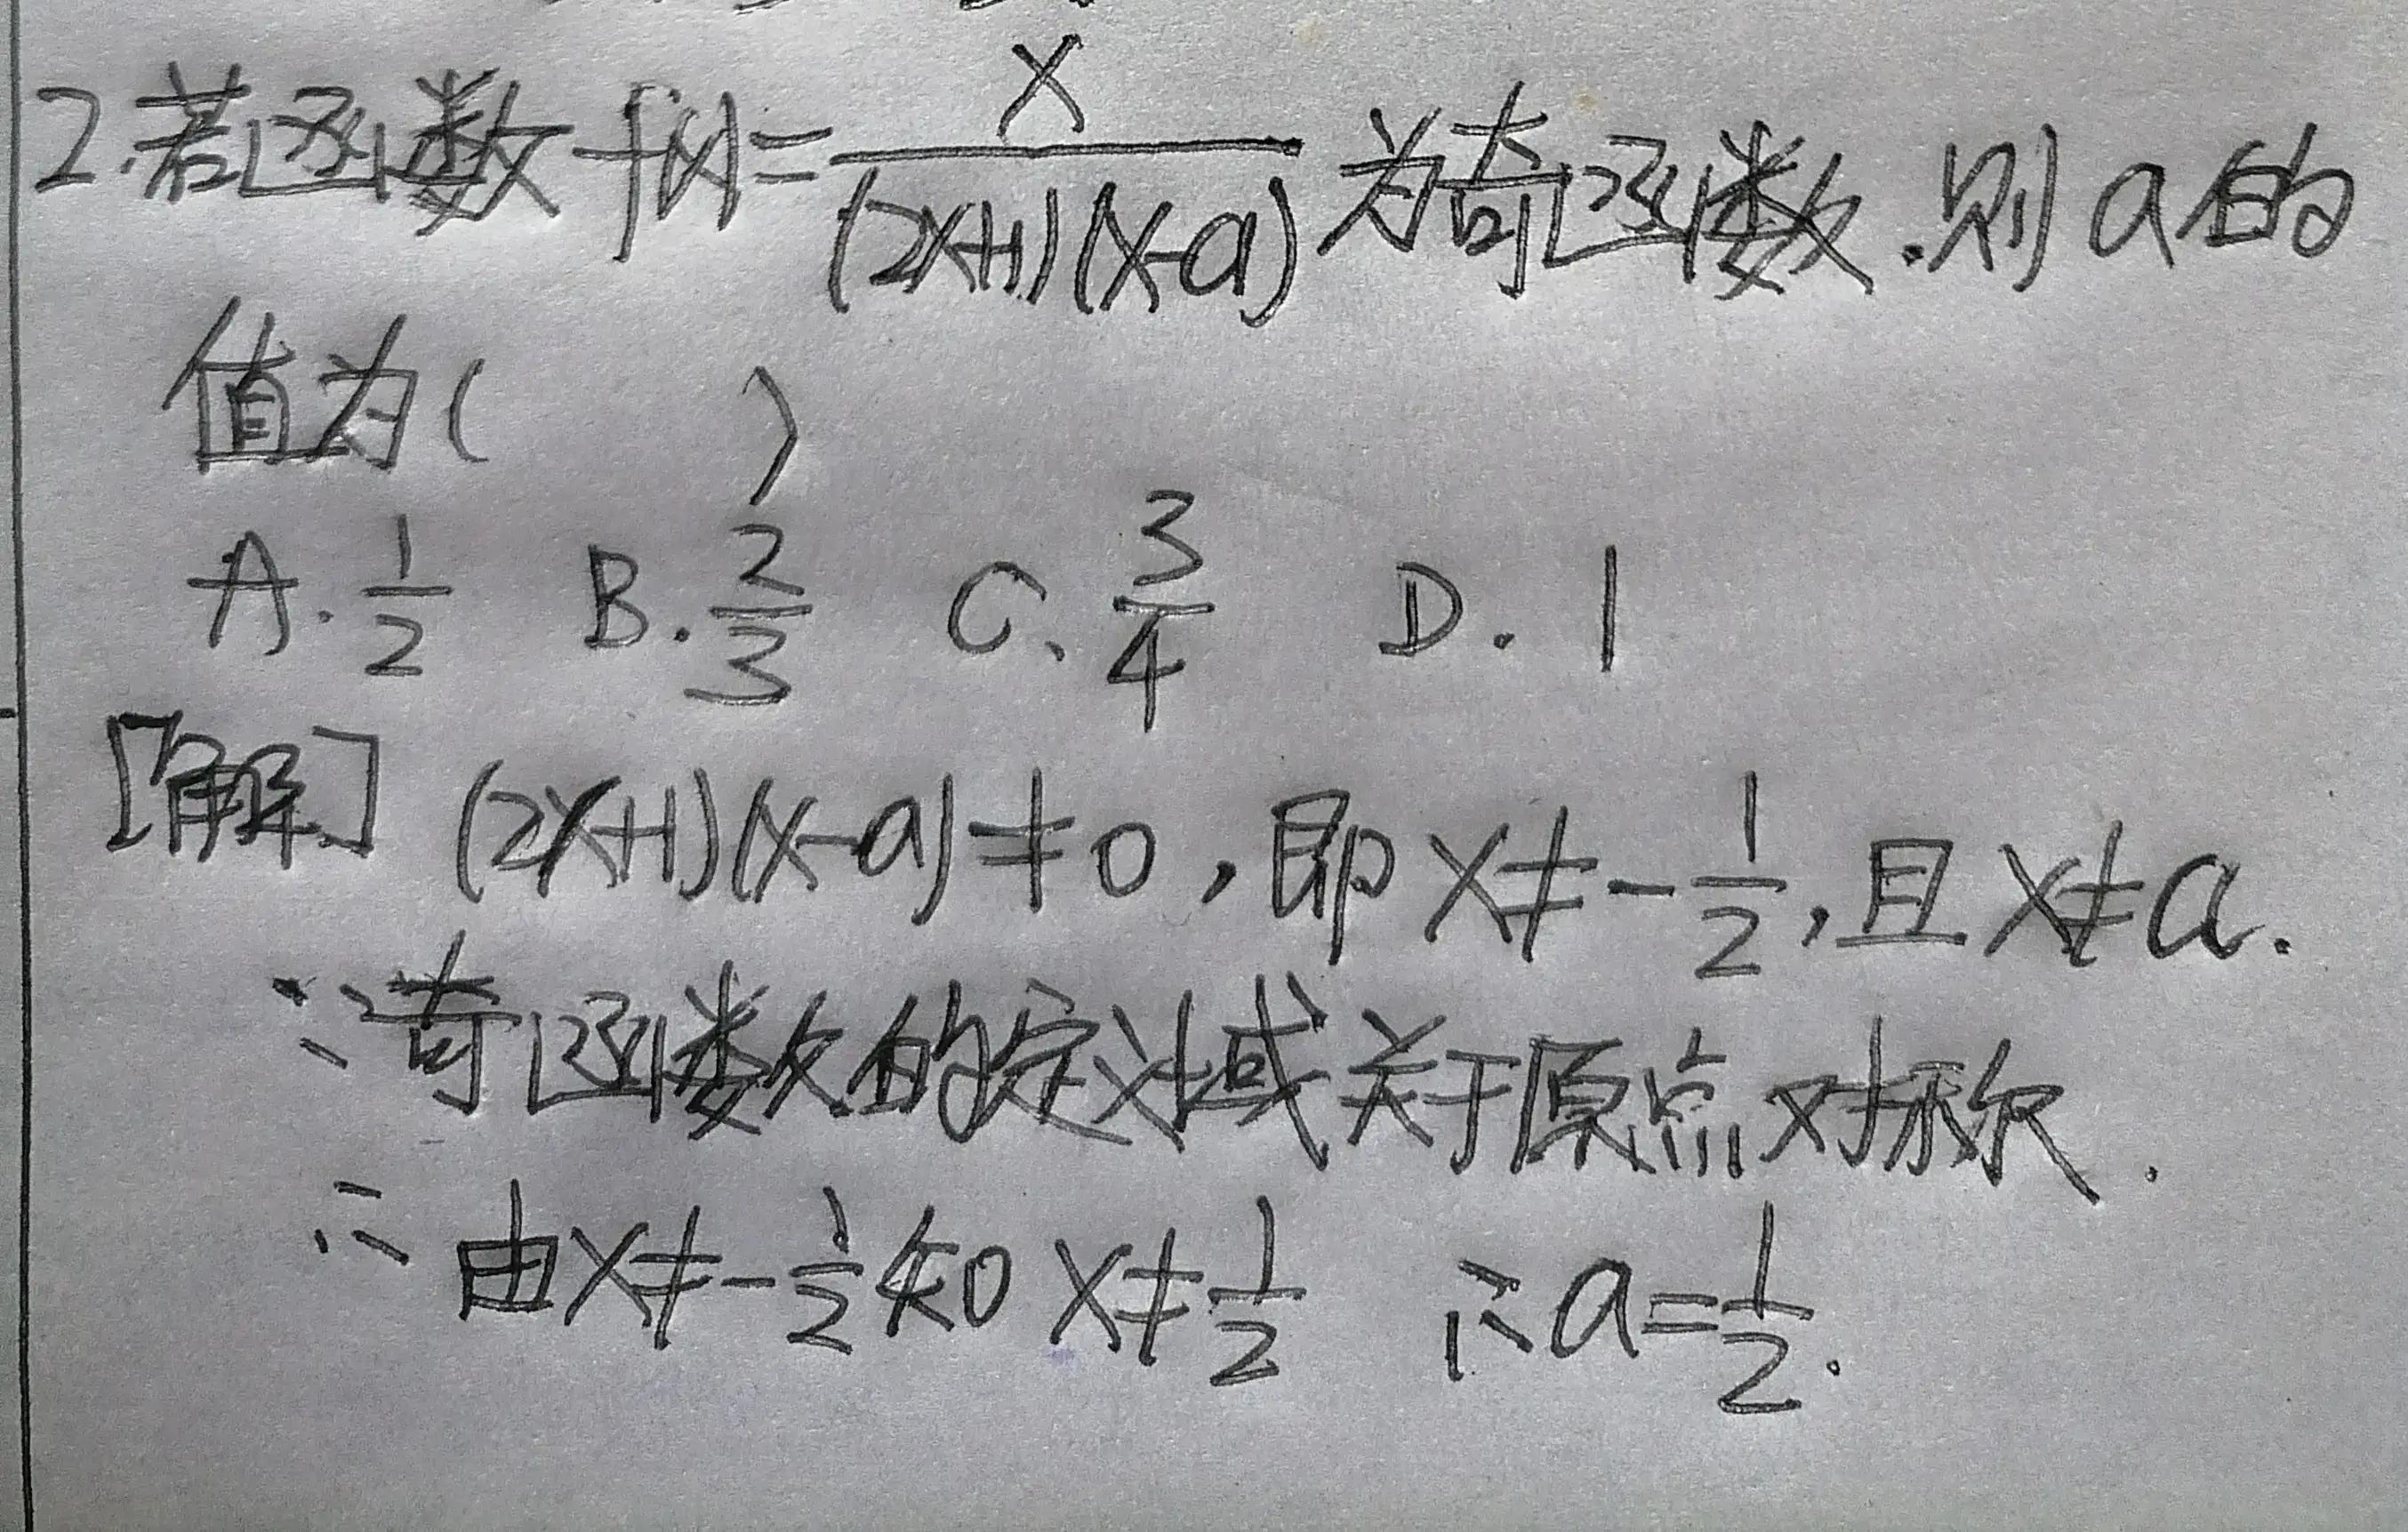 2.若函数f(x)=x/((2x+1)(x-a))为奇函数.则a的
值为( )
A.1/2 B.2/3 C、3/4 D.1
[解] (2x+1)(x-a)≠0,即x≠-1/2,且x≠a.
∵奇函数的定义域关于原点对称.
∴由x≠-1/2知x≠1/2 ∴a=1/2.